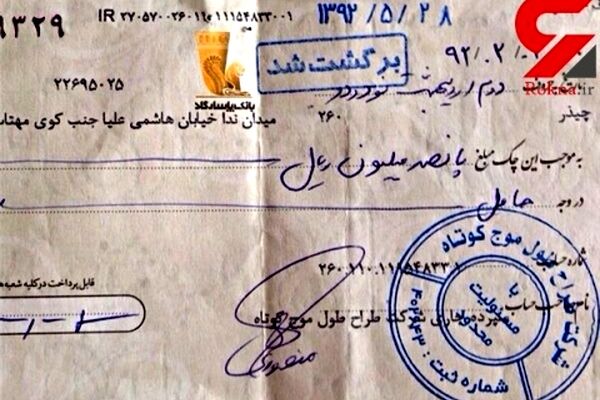 ۹۳۲۹
IR ۲۷۰۵۷۰۰۲۶۰۱۱۰۱۱۱۵۴۸۳۳۰۰۱
۱۳۹۲/۵/۲۸
برگشت شد
بانک پاسارگاد
Rokna.ir
۲۲۶۹۵۰۲۵
دوم اردیبهشت
میدان ندا خیابان هاشمی علیا جنب کوی مهتاب
۲۶۰
چیذر
به موجب این چک مبلغ پانصد میلیون ریال
در وجه حامل
شماره حساب
۲۶۰.۱۱۰.۱۱۱۵۴۸۳۳.۱
قابل پرداخت در کلیه شعبه‌ها
سپرده جاری شرکت طراح طول موج کوتاه
منصوری
شرکت طراح طول موج کوتاه
با مسئولیت محدود
شماره ثبت :